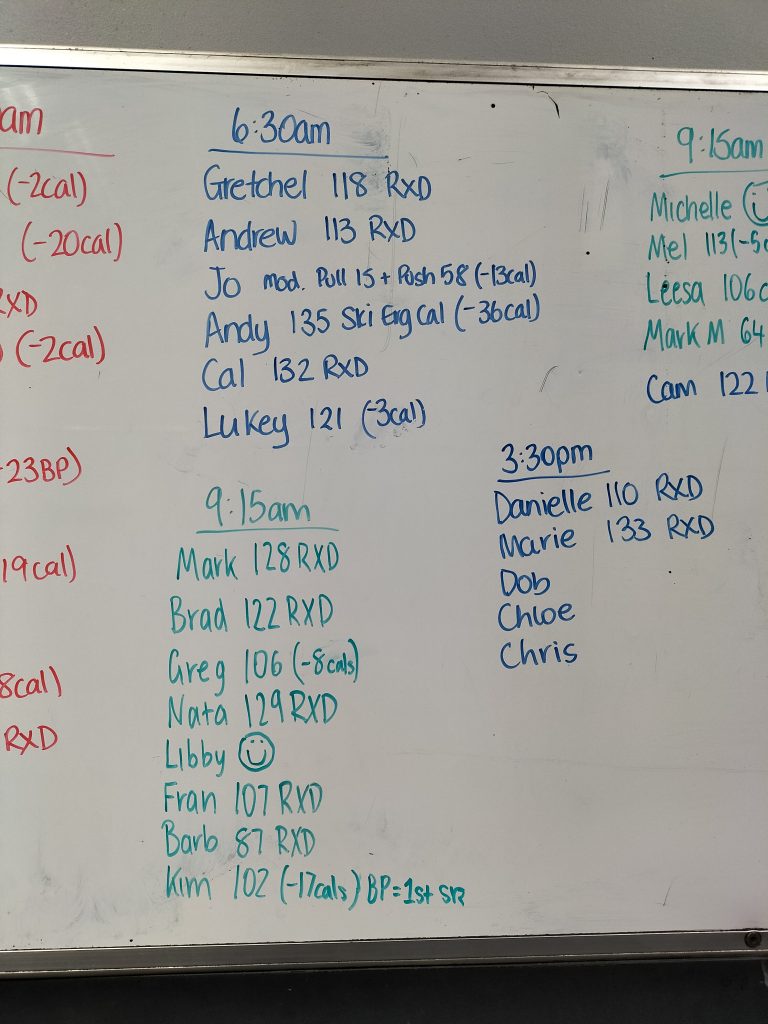 am
(-2cal)
(-20cal)
RXD
(-2cal)
-23BP)
19cal)
8cal)
RXD
6:30am
Gretchel 118 RXD
Andrew 113 RXD
Jo mod. Pull 15 + Push 58 (-13cal)
Andy 135 Ski Erg Cal (-36cal)
Cal 132 RXD
Lukey 121 (-3cal)
9:15am
Mark 128 RXD
Brad 122 RXD
Greg 106 (-8cals)
Nata 129 RXD
Libby
Fran 107 RXD
Barb 87 RXD
Kim 102 (-17cals) BP=1st
9:15am
Michelle
Mel 113 (-5c
Leesa 106
Mark M 64
Cam 122
3:30pm
Danielle 110 RXD
Marie 133 RXD
Dob
Chloe
Chris